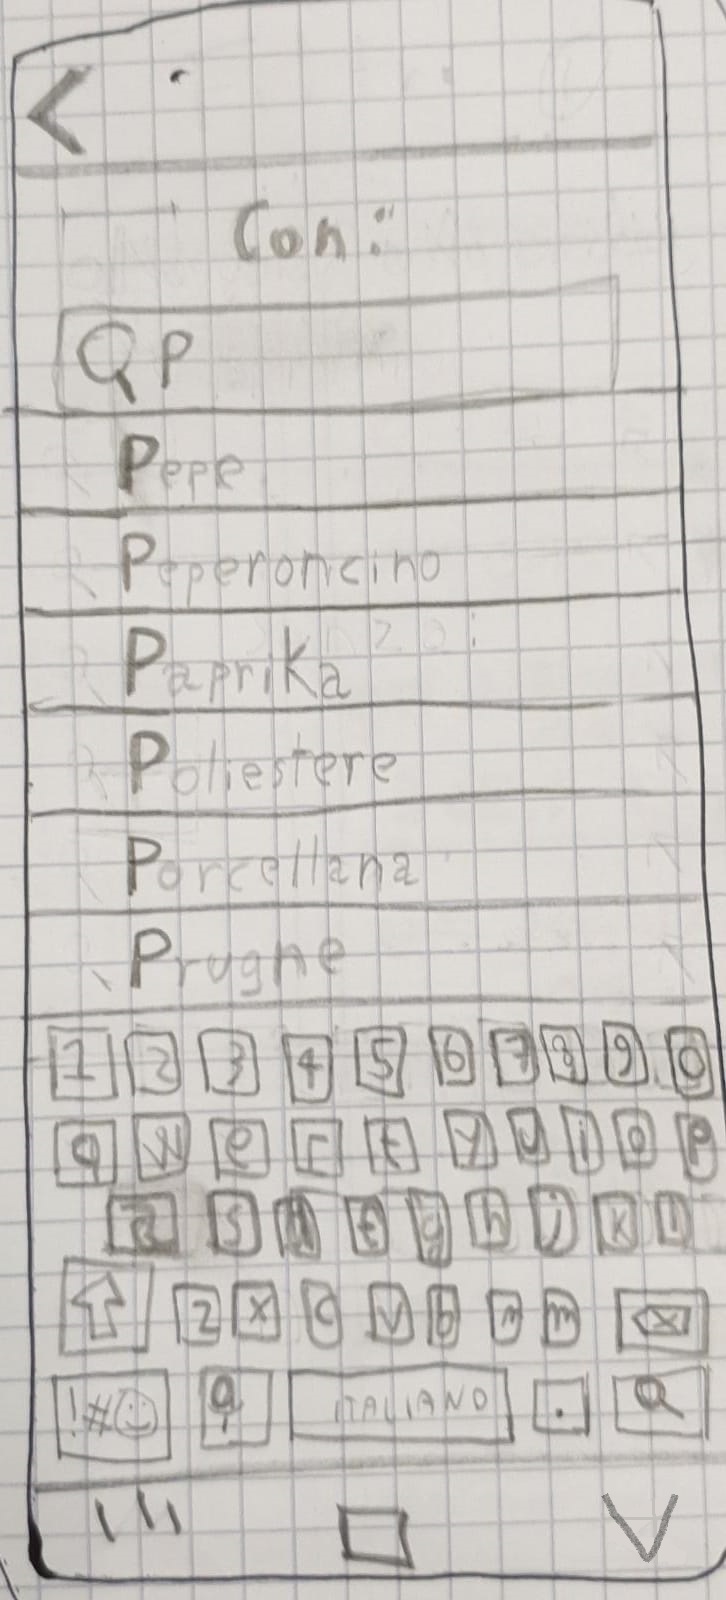 Con:
P
Pepe
Peperoncino
Paprika
Poliestere
Porcellana
Prugne
1 2 3 4 5 6 7 8 9 0
q w e r t y u i o p
a s d f g h j k l
z x c v b n m
!#☺ ITALIANO .